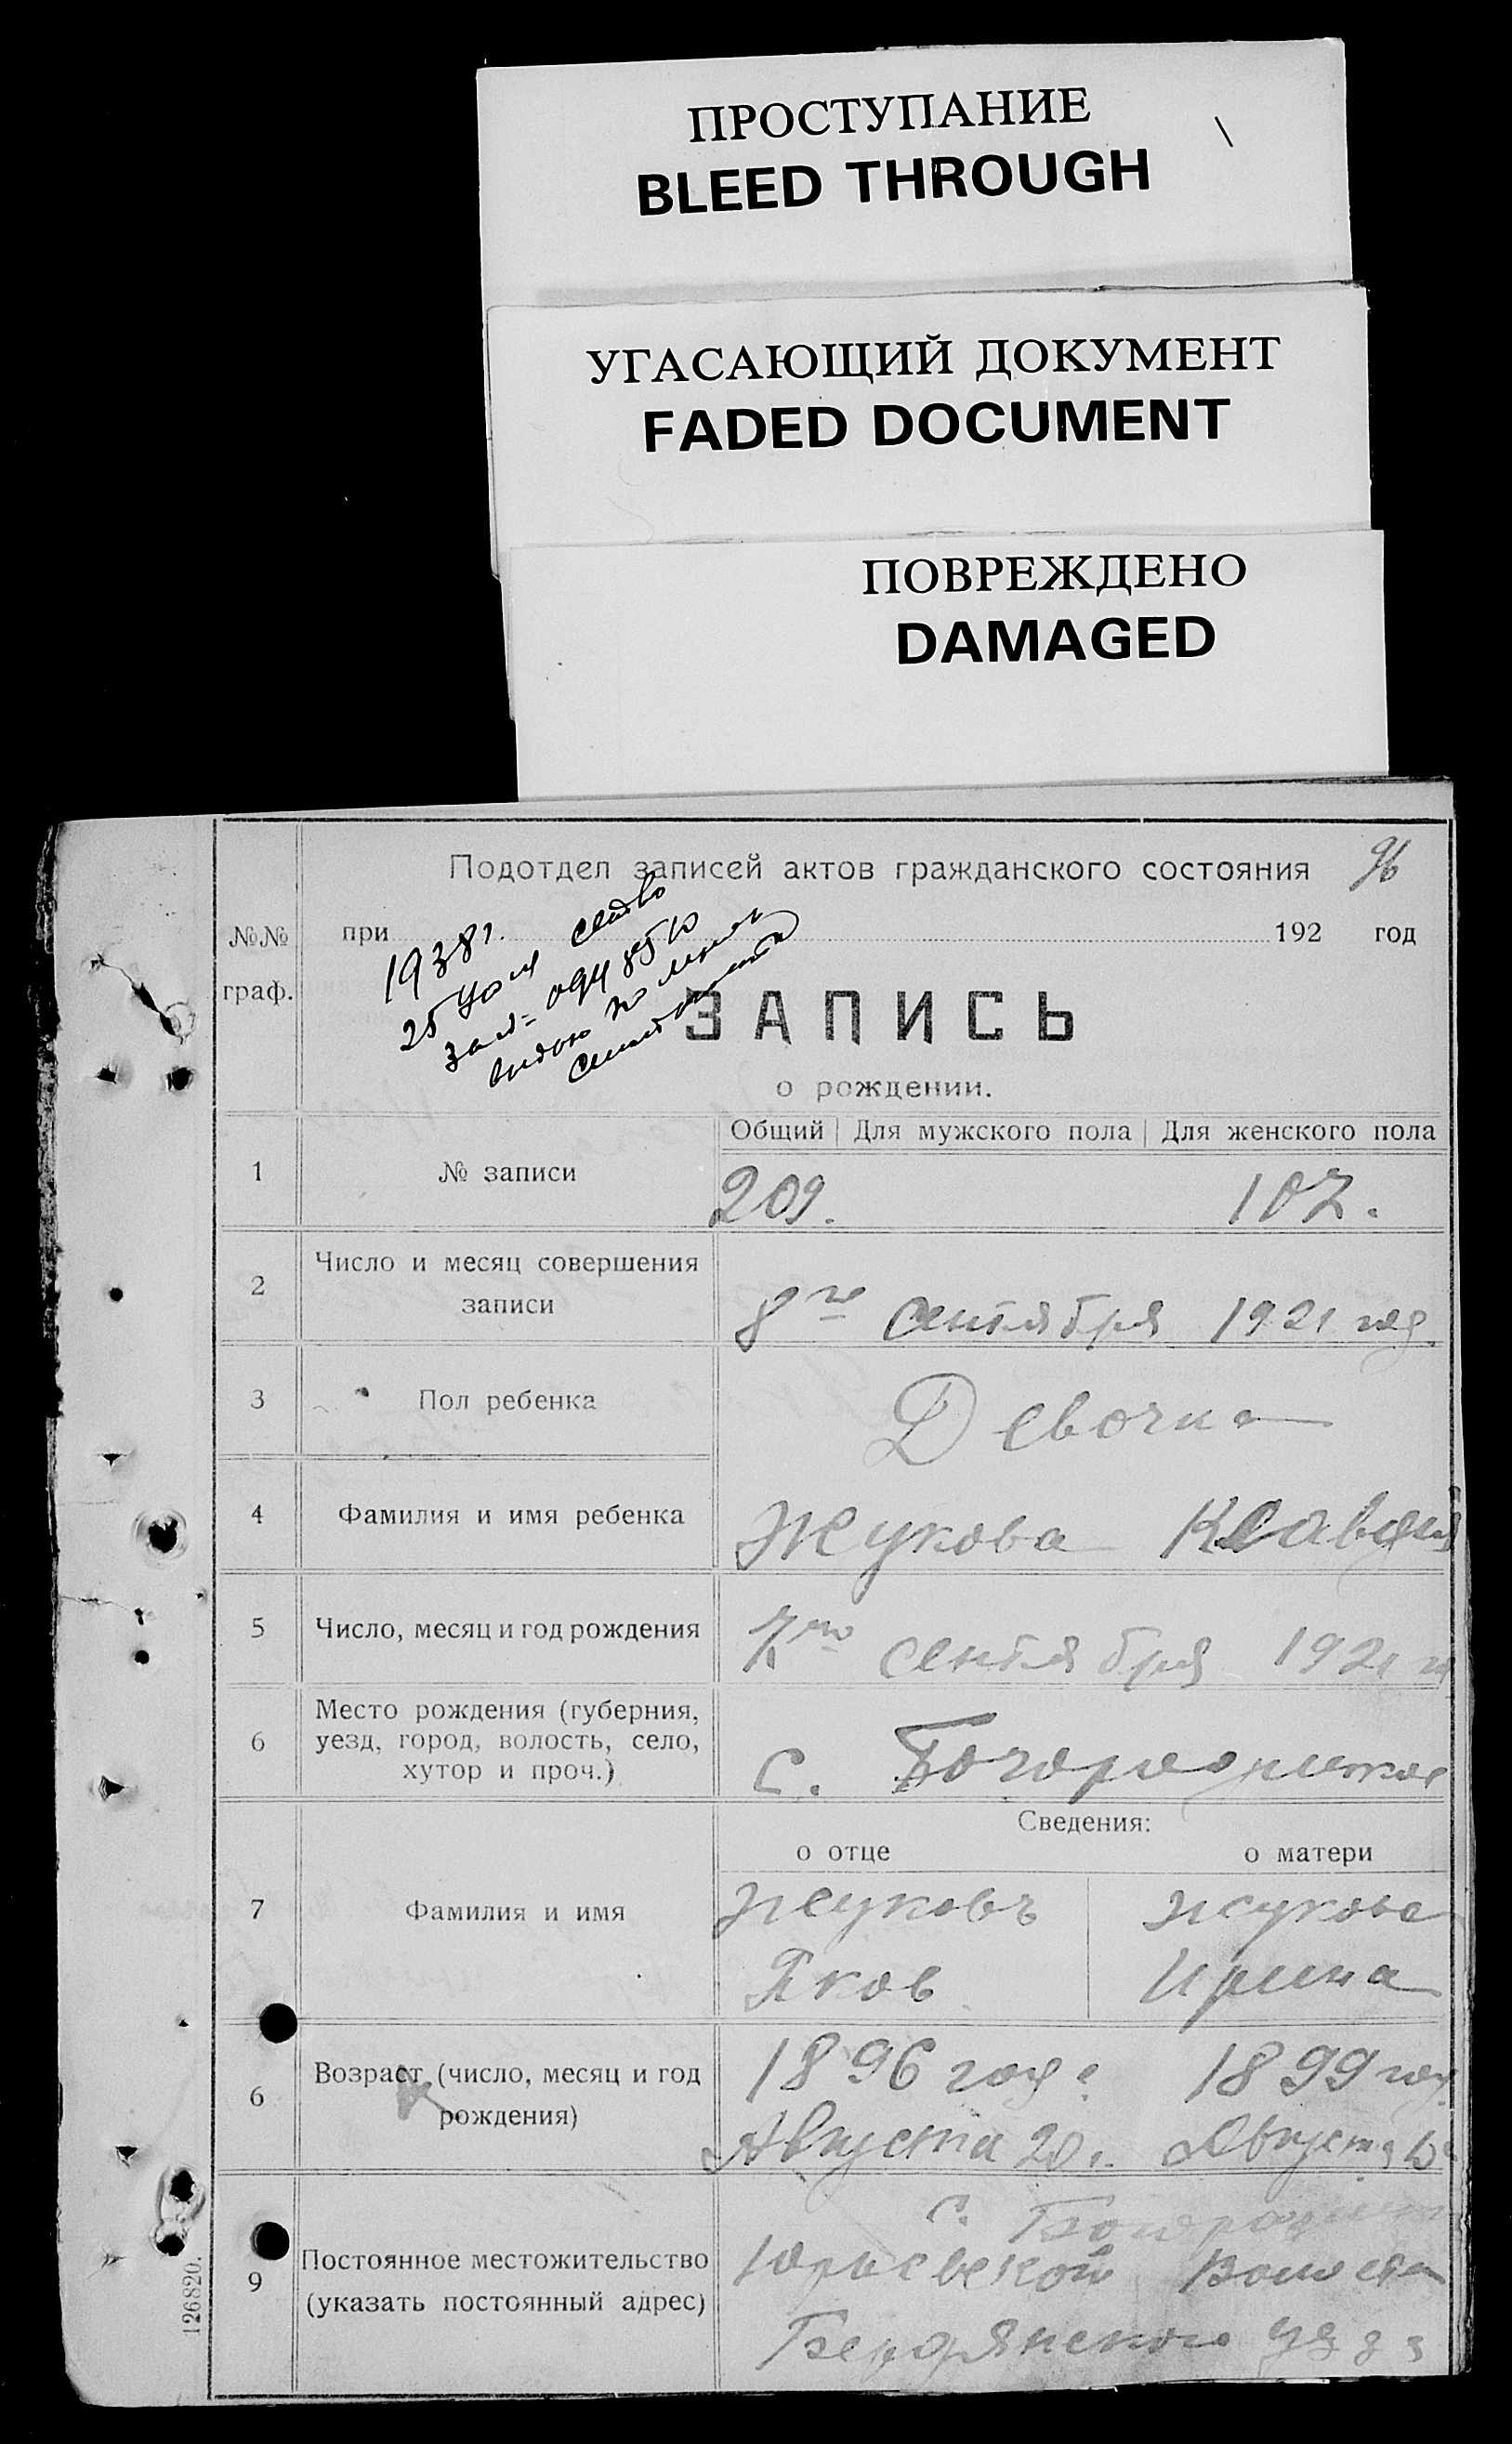 ПРОСТУПАНИЕ
BLEED THROUGH
УГАСАЮЩИЙ ДОКУМЕНТ
FADED DOCUMENT
ПОВРЕЖДЕНО
DAMAGED
Подотдел записей актов гражданского состояния 96
№№ граф. при 192 год
1938 г.
25
ЗАПИСЬ
о рождении.
Общий Для мужского пола Для женского пола
1 № записи 209. 107.
2 Число и месяц совершения
записи 8го сентября 1921 год.
3 Пол ребенка Девочка
4 Фамилия и имя ребенка Жукова Клавдия
5 Число, месяц и год рождения 7го сентября 1921 г
6 Место рождения (губерния,
уезд, город, волость, село,
хутор и проч.) с.
Сведения:
о отце о матери
7 Фамилия и имя Жуковъ Жукова
Яков Ирина
6 Возраст (число, месяц и год 1896 года 1899 год
рождения) Августа 20. Августа
с.
9 Постоянное местожительство Юрьевской Волости
(указать постоянный адрес)
Бердянского
126820.